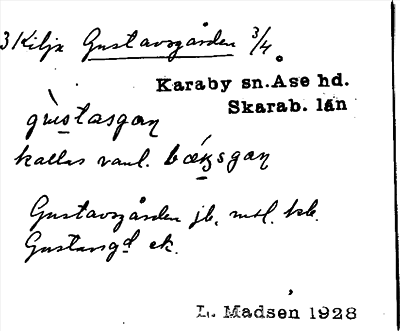 3 Kilja Gustavsgården 3/4
Karaby sn. Åse hd.
Skarab. län
gùstasgaɳ
kallas vanl. bæksgaɳ
Gustavsgården jb, mtl. kb.
Gustavsgd ek.
L. Madsen 1928